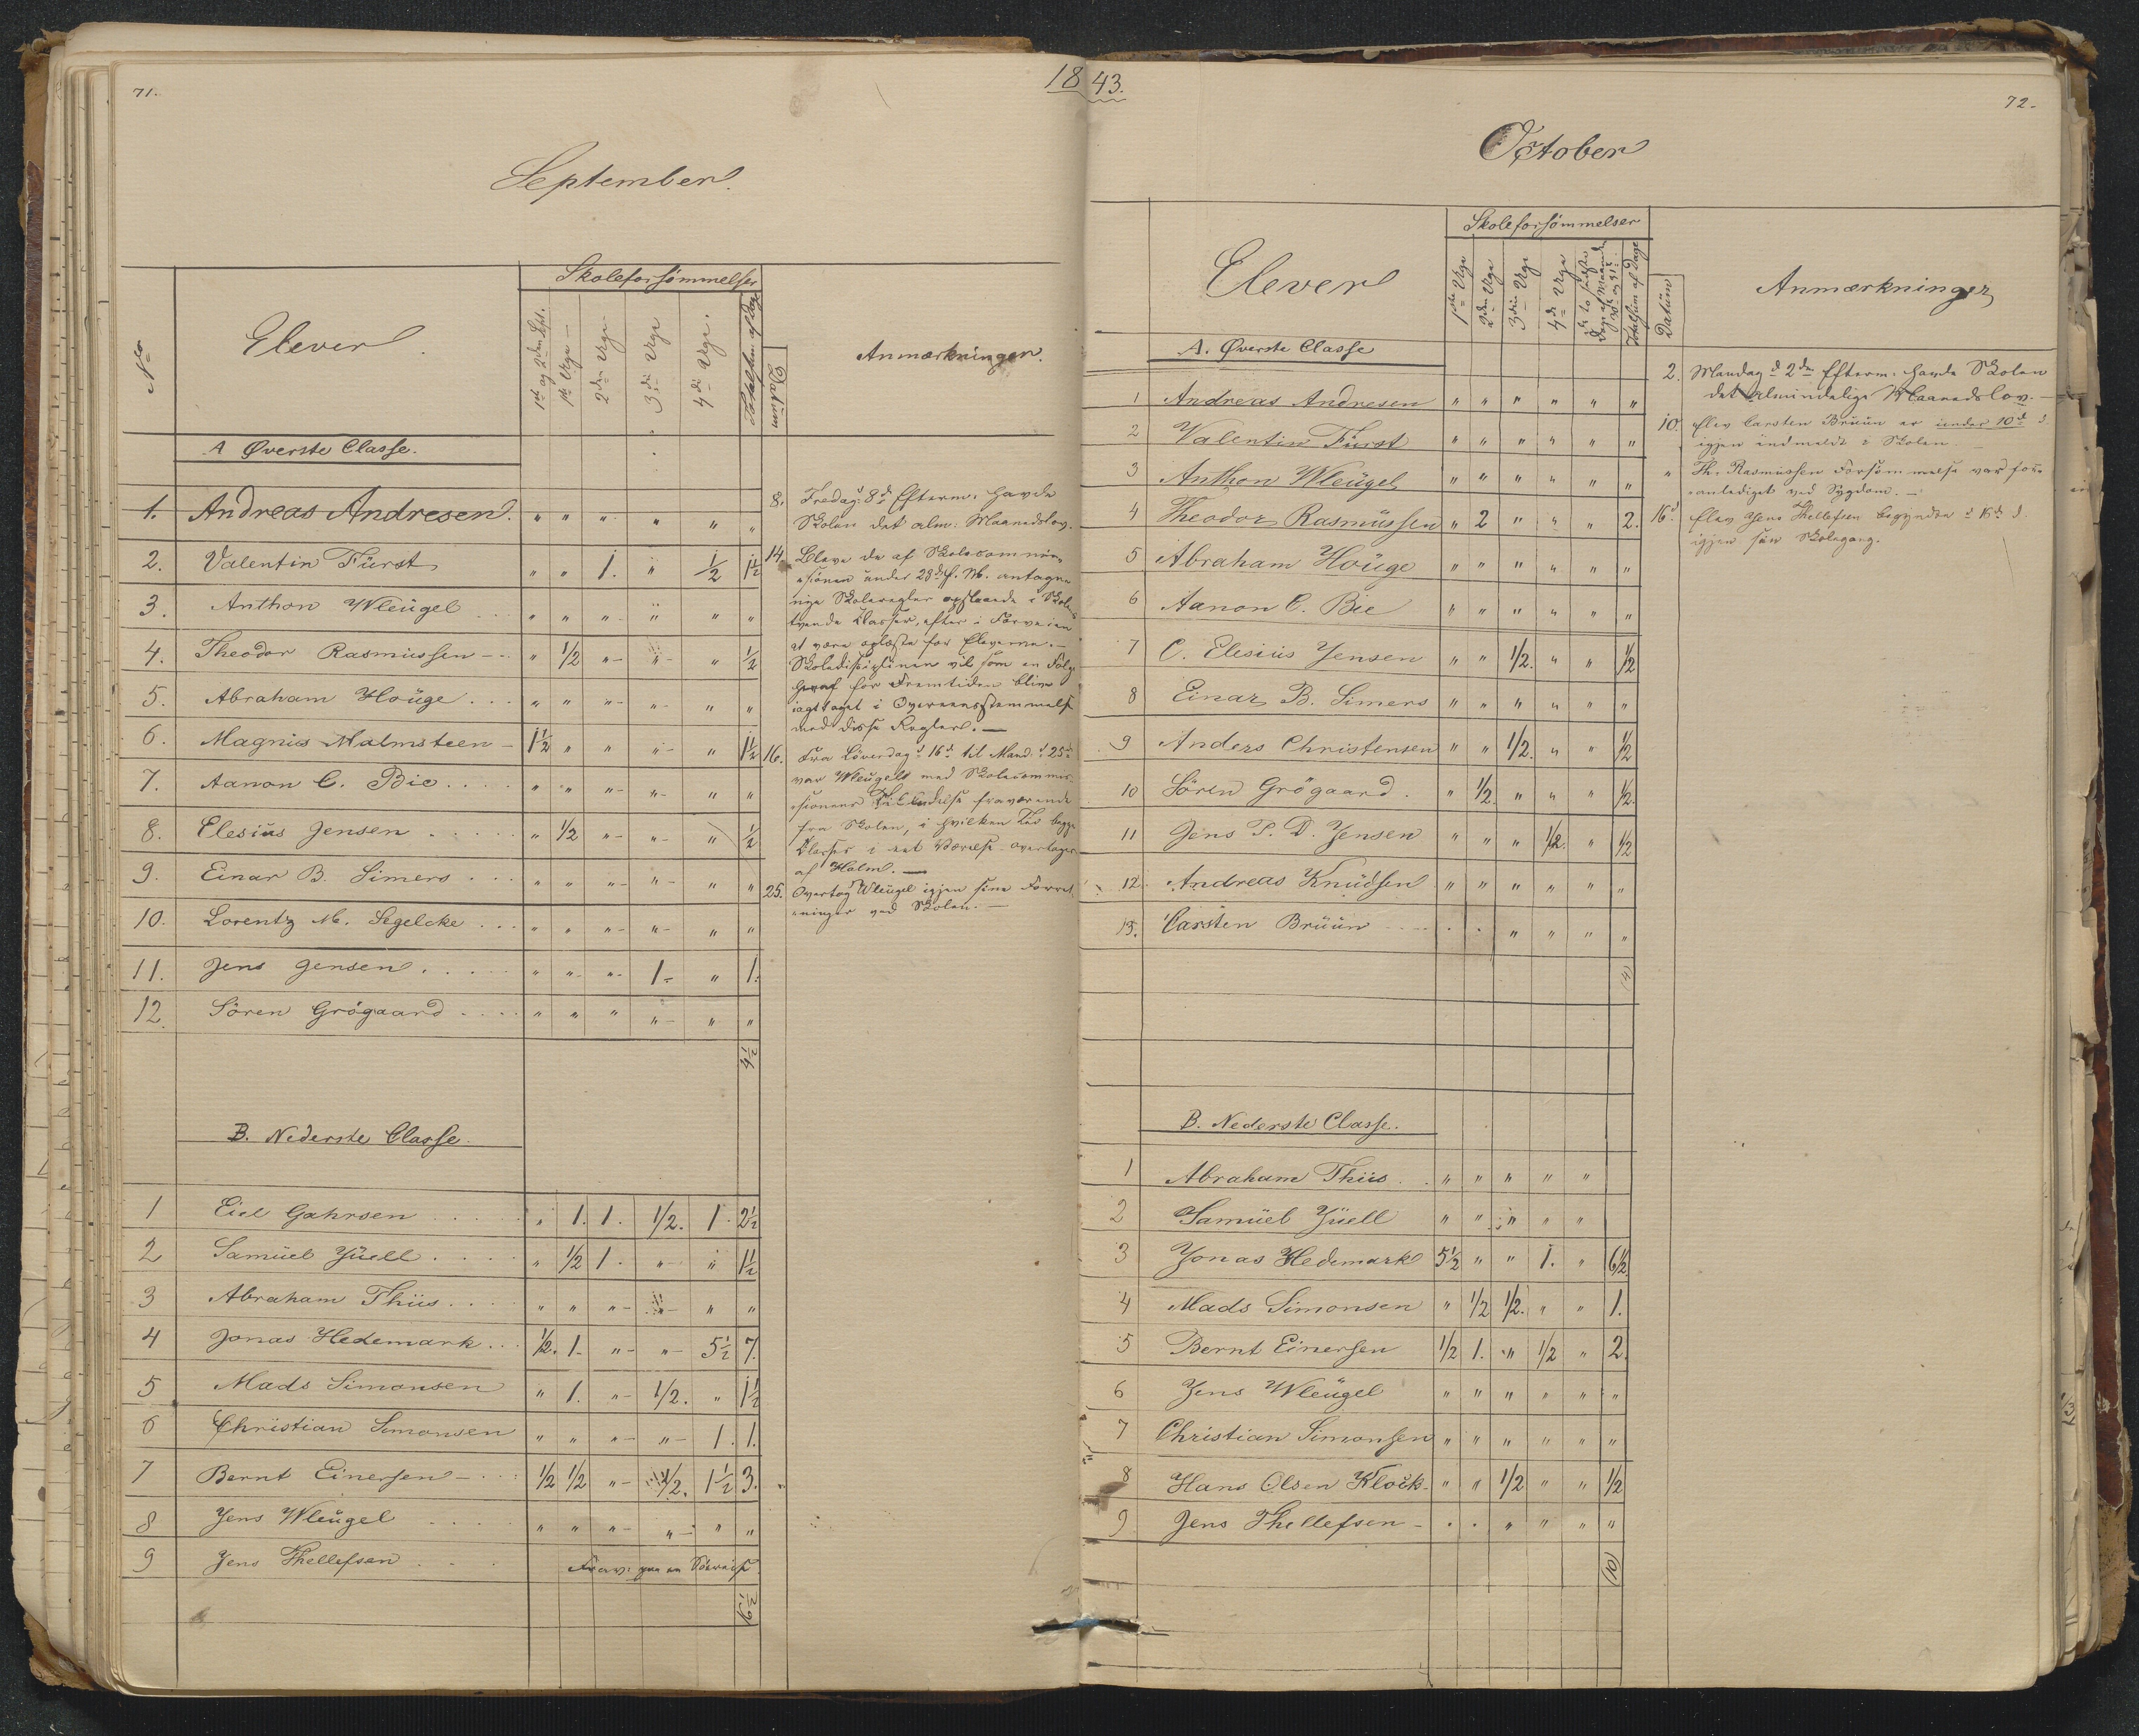 1843.
71.
September.
No
Elever.
Skoleforsømmelser
1ste og 2den Sept.
1ste Uge
2den Uge
3die Uge
4de Uge.
Totalsum af Dage
Datum
Anmærkninger.
A Øverste Classe.
1. Andreas Andresen. " " " " " "
2. Valentin Fürst " " 1. " 1/2 1 1/2
3. Anthon Wleügel " " " " " "
4. Theodor Rasmüssen " 1/2 " " " 1/2
5. Abraham Hoüge " " " " " "
6. Magnüs Malmsteen 1 1/2 " " " " 1 1/2
7. Aanon C. Bie " " " " " "
8. Elesiüs Jensen " 1/2 " " " 1/2
9. Einar B. Simers " " " " " "
10. Lorentz M. Segelcke " " " " " "
11. Jens Jensen " " " 1 " 1.
12. Sören Grögaard " " " " " "
B. Nederste Classe.
1 Eiel Gahrsen " 1. 1. 1/2. 1. 2 1/2
2 Samüel Jüell " 1/2 1. " " 1 1/2
3 Abraham Thiis " " " " " "
4 Jonas Hedemark 1/2. 1. " " 5 1/2 7.
5 Mads Simonsen " 1. " 1/2. " 1 1/2
6 Christian Simonsen " " " " 1. 1.
7 Bernt Einersen 1/2 1/2 " 1/2. 1 1/2 3.
8 Jens Wleügel " " " " " "
9 Jens Thellefsen
8. Fredag: 8de Efterm: havde
Skolen det alm: Maanedslov.
14. Bleve de af Skolecommis-
sionen under 28de f. M. antagne
nye Skoleregler opslaaede i Skolens
tvende Classer, efter i Forveien
at være oplæste for Eleverne.
Skoledisciplinen vil som en Følge
heraf for Fremtiden blive
iagttaget i Overensstemmelse
med disse Regler.
16. Fra Löverdag d 16de til Mand: d 25de
var Wleügel med Skolecommis-
sionens Tilladelse fraværende
fra Skolen, i hvilken Tid begge
Classer i eet Værelse overtoges
af Holm.
25. Overtog Wleügel igjen sine Forret-
ninger ved Skolen.
72.
October
Elever
Skoleforsømmelser
1ste Uge
2den Uge
3die Uge
4de Uge
Totalsum af Dage
Datüm
Anmærkninger
A. Øverste Classe
1 Andreas Andresen " " " " " "
2 Valentin Fürst " " " " " "
3 Anthon Wleügel " " " " " "
4 Theodor Rasmüssen " 2 " " " 2.
5 Abraham Hoüge " " " " " "
6 Aanon C. Bie " " " " " "
7 C. Elesiüs Jensen " " 1/2. " " 1/2
8 Einar B. Simers " " " " " "
9 Anders Christensen " " 1/2. " " 1/2
10 Sören Grögaard. " 1/2. " " " 1/2.
11 Jens P. D. Jensen " " " 1/2. " 1/2
12 Andreas Knüdsen " " " " " "
13. Carsten Brüün . . " " " "
(4)
B. Nederste Classe.
1 Abraham Thiis " " " " "
2 Samüel Jüell " " " " "
3 Jonas Hedemark 5 1/2 " " 1. " 6 1/2
4 Mads Simonsen " 1/2 1/2. " " 1.
5 Bernt Einersen 1/2 1. " 1/2 " 2.
6 Jens Wleügel " " " " " "
7 Christian Simonsen " " " " " "
8 Hans Olsen Klock " " 1/2 " " 1/2
9 Jens Thellefsen . . " " " "
(10)
2. Mandag d 2den Efterm: havde Skolen
det almindelige Maanedslov.
10. Elev Carsten Brüün er under 10de d
igjen indmeldt i Skolen
" Th. Rasmüssen Forsömmelse var for-
anlediget ved Sygdom.
16d. Elev Jens Thellefsen begyndte d 16de d.
igjen sin Skolegang.